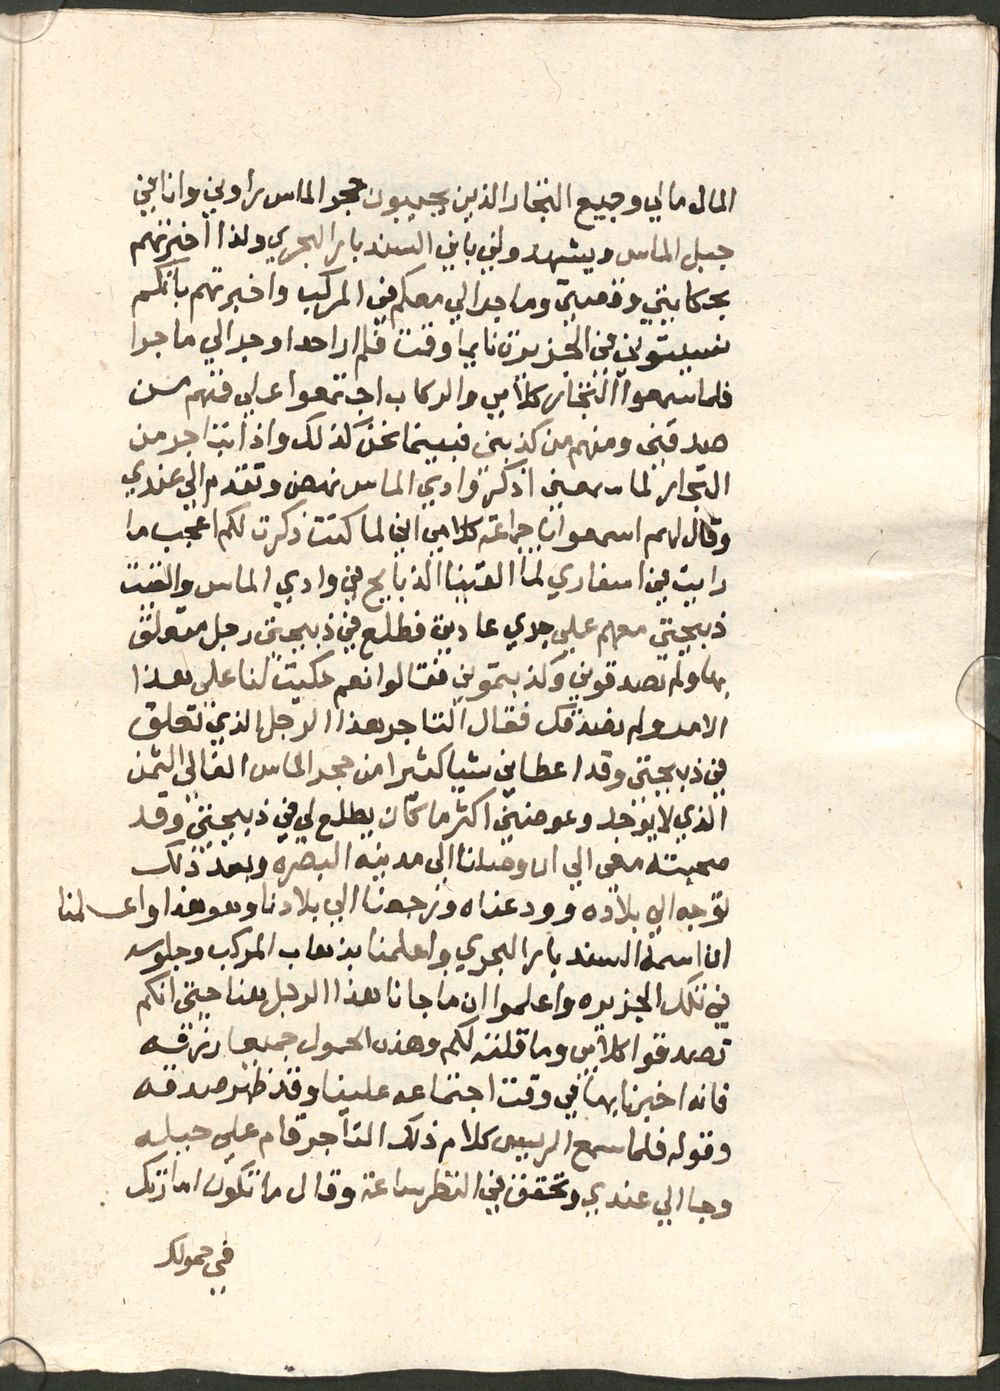 المال مالي وجميع التجار الذين يجيبون حجر الماس راوني وانا في
جبل الماس ويشهدولي باني السندباد البحري ولذا اخبرتهم
بحكايتي وقصتي وما جرا لي معكم في المركب واخبرتهم بانكم
نسيتوني في الجزيرة نايما وقمت فلم ار احدا وجرا لي ما جرا
فلما سمعوا التجار كلامي والركاب اجتمعوا علي فمنهم من
صدقني ومنهم من كذبني فبينما نحن كذلك واذا بتاجر من
التجار لما سمعني اذكر وادي الماس نهض وتقدم الي عندي
وقال لهم اسمعوا يا جماعة كلامي اني لما كنت ذكرت لكم اعجب ما
رايت في اسفاري لما القينا الذبايح في وادي الماس والقيت
ذبيحتي معهم علي جري عادتي فطلع في ذبيحتي رجل متعلق
بها ولم تصدقوني وكذبتموني فقالوا نعم حكيت لنا علي هذا
الامر ولم نصدقك فقال التاجر هذا الرجل الذي تعلق
في ذبيحتي وقد اعطاني شيا كثيرا من حجر الماس الغالي الثمن
الذي لا يوجد وعوضني اكثر ما كان يطلع لي في ذبيحتي وقد
صحبته معي الي ان وصلنا الي مدينه البصره وبعد ذلك
توجه الي بلاده وودعناه ورجعنا الي بلادنا وهو هذا واعلمنا
ان اسمه السندباد البحري واعلمنا بذهاب المركب وجلوسه
في تلك الجزيره واعلموا ان ما جانا هذا الرجل هنا حتي انكم
تصدقوا كلامي وما قلته لكم وهذه الحمول جميعها رزقه
فانه اخبرنا بها في وقت اجتماعه علينا وقد ظهر صدقه
وقوله فلما سمع الريس كلام ذلك التاجر قام علي حيله
وجا الي عندي وتحقق في النظر ساعة وقال ما تكون امارتك
في حمولك